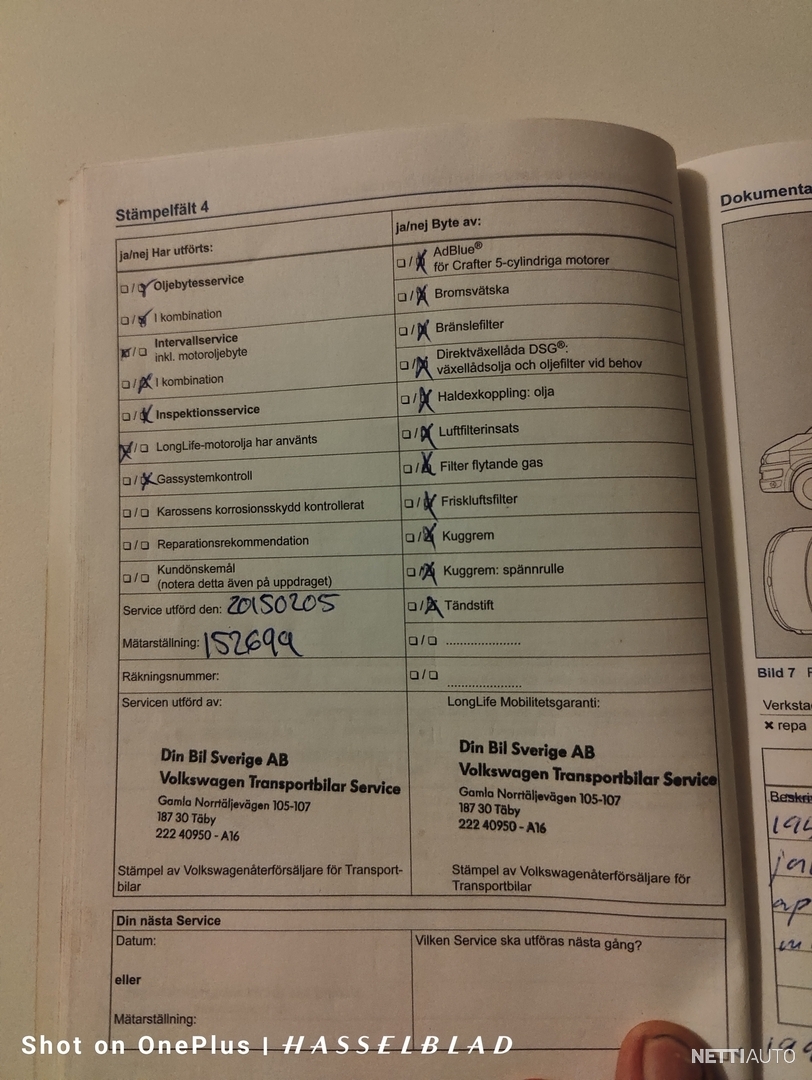 Stämpelfält 4
ja/nej Har utförts:
☐/☒ Oljebytesservice
☐/☒ I kombination
☒/☐ Intervallservice
inkl. motoroljebyte
☐/☒ I kombination
☐/☒ Inspektionsservice
☒/☐ LongLife-motorolja har använts
☐/☒ Gassystemkontroll
☐/☐ Karossens korrosionsskydd kontrollerat
☐/☐ Reparationsrekommendation
☐/☐ Kundönskemål
(notera detta även på uppdraget)
Service utförd den: 20150205
Mätarställning: 152699
Räkningsnummer:
ja/nej Byte av:
☐/☒ AdBlue®
för Crafter 5-cylindriga motorer
☐/☒ Bromsvätska
☐/☒ Bränslefilter
☐/☒ Direktväxellåda DSG®:
växellådsolja och oljefilter vid behov
☐/☒ Haldexkoppling: olja
☐/☒ Luftfilterinsats
☐/☒ Filter flytande gas
☐/☒ Friskluftsfilter
☐/☒ Kuggrem
☐/☒ Kuggrem: spännrulle
☐/☒ Tändstift
☐/☐ ......................
☐/☐ ......................
Servicen utförd av:
Din Bil Sverige AB
Volkswagen Transportbilar Service
Gamla Norrtäljevägen 105-107
187 30 Täby
222 40950 - A16
Stämpel av Volkswagenåterförsäljare för Transport-
bilar
LongLife Mobilitetsgaranti:
Din Bil Sverige AB
Volkswagen Transportbilar Service
Gamla Norrtäljevägen 105-107
187 30 Täby
222 40950 - A16
Stämpel av Volkswagenåterförsäljare för
Transportbilar
Din nästa Service
Datum:
eller
Mätarställning:
Vilken Service ska utföras nästa gång?
Dokumenta
Bild 7
Verksta
× repa
Shot on OnePlus | HASSELBLAD
NETTIAUTO